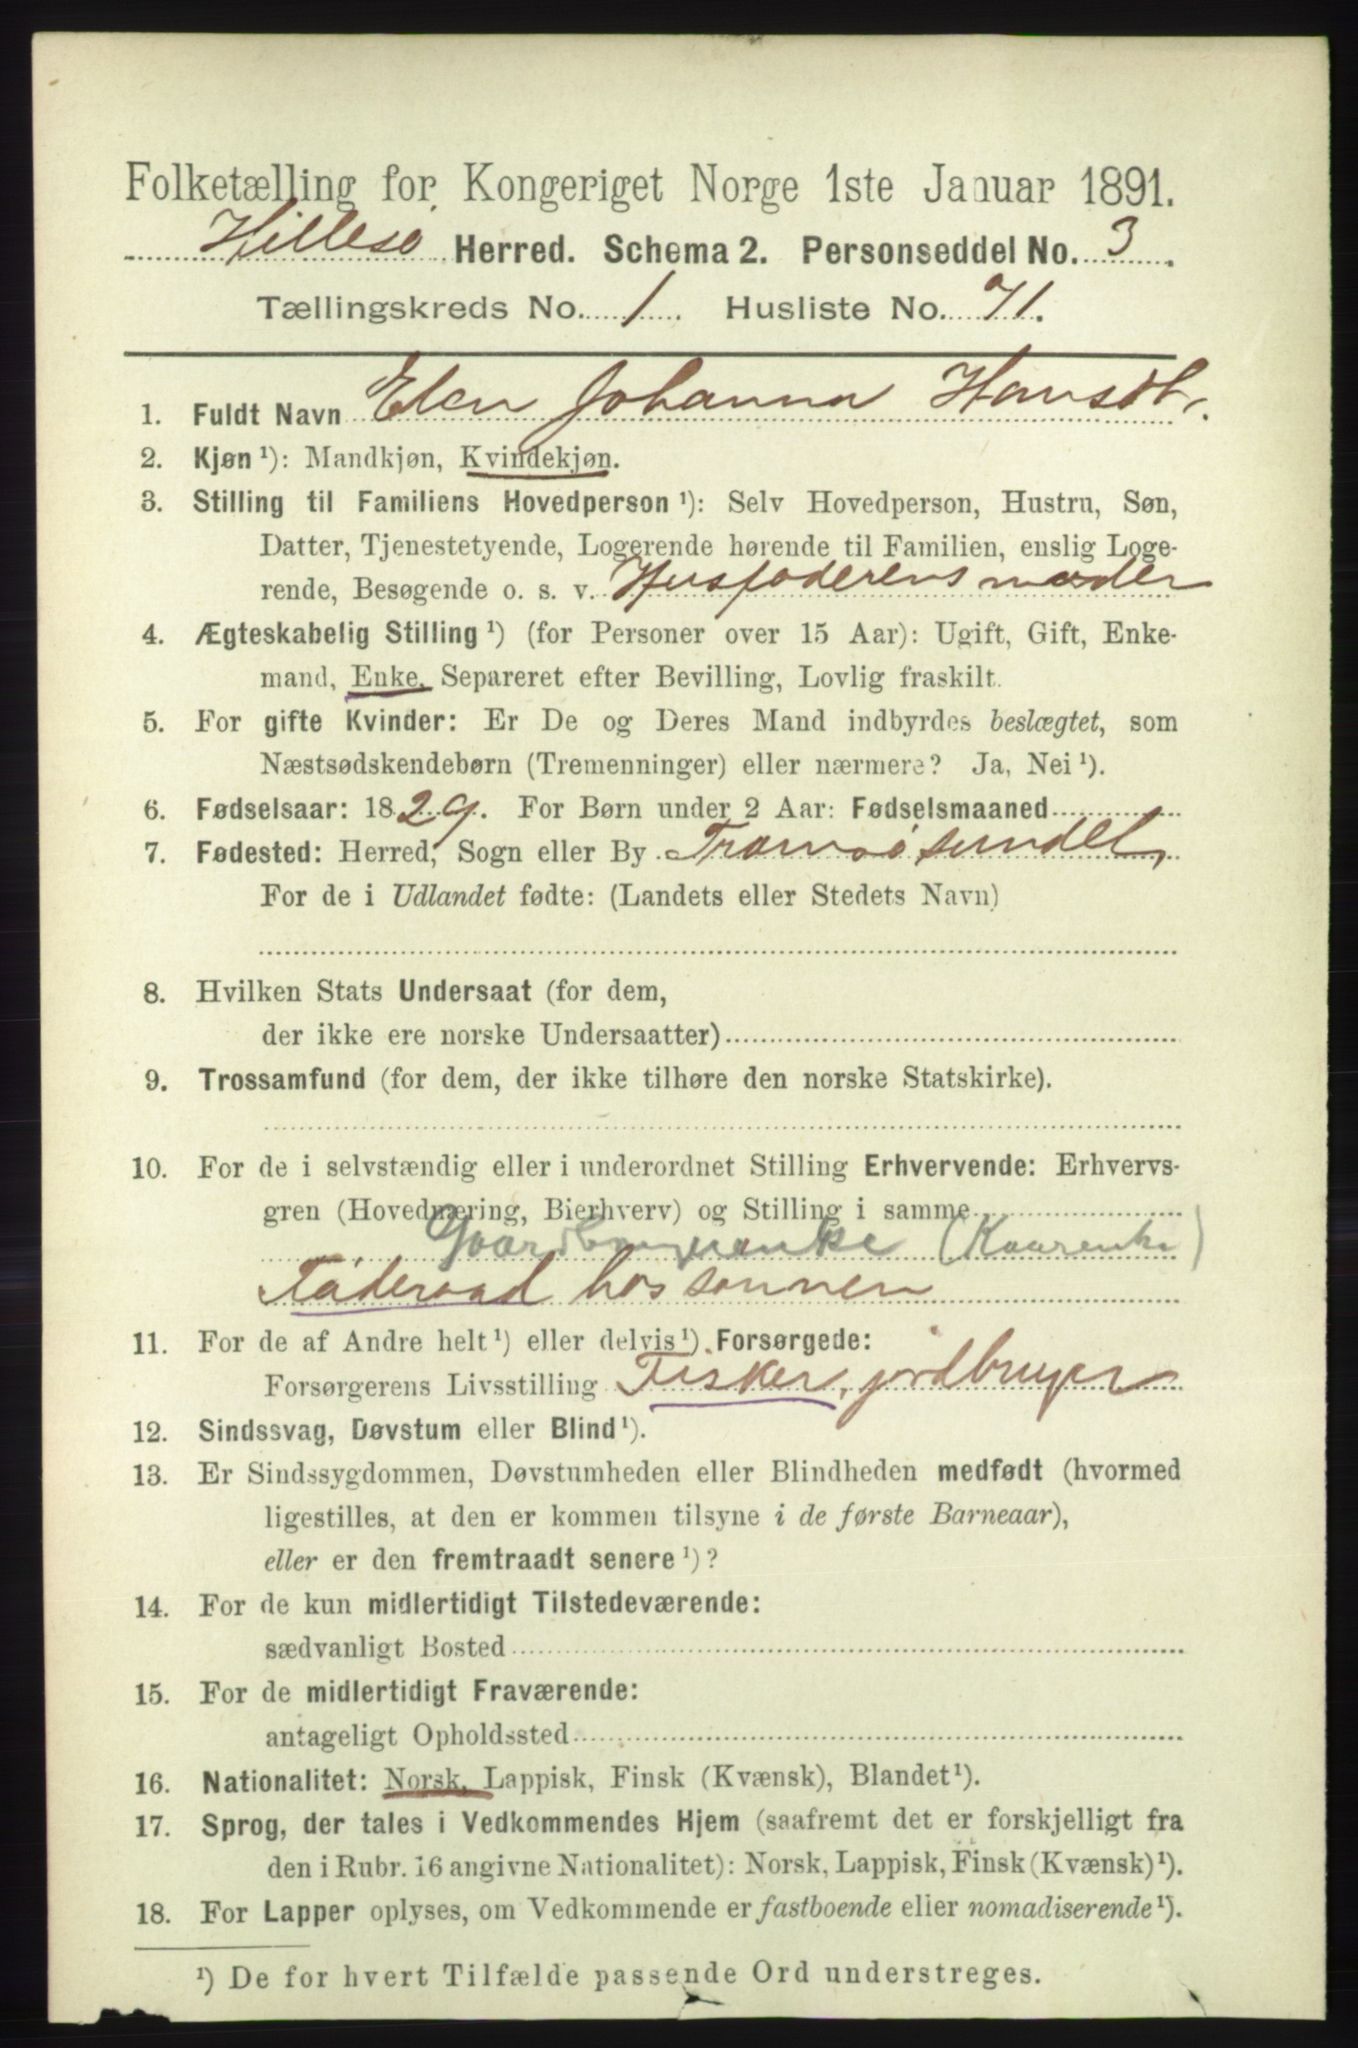 Folketælling for Kongeriget Norge 1ste Januar 1891.
Hillesø Herred. Schema 2. Personseddel No. 3.
Tællingskreds No. 1. Husliste No. 71.
1. Fuldt Navn Elen Johanna Hansdt.
2. Kjøn ¹): Mandkjøn, Kvindekjøn.
3. Stilling til Familiens Hovedperson ¹): Selv Hovedperson, Hustru, Søn,
Datter, Tjenestetyende, Logerende hørende til Familien, enslig Loge-
rende, Besøgende o. s. v. Husfaderens moder
4. Ægteskabelig Stilling ¹) (for Personer over 15 Aar): Ugift, Gift, Enke-
mand, Enke, Separeret efter Bevilling, Lovlig fraskilt.
5. For gifte Kvinder: Er De og Deres Mand indbyrdes beslægtet, som
Næstsødskendebørn (Tremenninger) eller nærmere? Ja, Nei ¹).
6. Fødselsaar: 1829. For Børn under 2 Aar: Fødselsmaaned
7. Fødested: Herred, Sogn eller By Tromsøsundet
For de i Udlandet fødte: (Landets eller Stedets Navn)
8. Hvilken Stats Undersaat (for dem,
der ikke ere norske Undersaatter)
9. Trossamfund (for dem, der ikke tilhøre den norske Statskirke).
10. For de i selvstændig eller i underordnet Stilling Erhvervende: Erhvervs-
gren (Hovednæring, Bierhverv) og Stilling i samme
(Kaarenke)
Føderaad hos sønnen
11. For de af Andre helt ¹) eller delvis ¹) Forsørgede:
Forsørgerens Livsstilling Fisker, jordbruger
12. Sindssvag, Døvstum eller Blind ¹).
13. Er Sindssygdommen, Døvstumheden eller Blindheden medfødt (hvormed
ligestilles, at den er kommen tilsyne i de første Barneaar),
eller er den fremtraadt senere ¹)?
14. For de kun midlertidigt Tilstedeværende:
sædvanligt Bosted
15. For de midlertidigt Fraværende:
antageligt Opholdssted
16. Nationalitet: Norsk, Lappisk, Finsk (Kvænsk), Blandet ¹).
17. Sprog, der tales i Vedkommendes Hjem (saafremt det er forskjelligt fra
den i Rubr. 16 angivne Nationalitet): Norsk, Lappisk, Finsk (Kvænsk) ¹).
18. For Lapper oplyses, om Vedkommende er fastboende eller nomadiserende ¹).
¹) De for hvert Tilfælde passende Ord understreges.